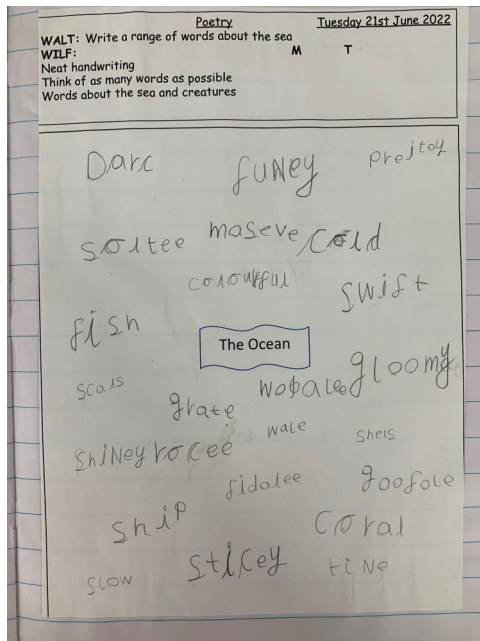 Poetry Tuesday 21st June 2022
WALT: Write a range of words about the sea
WILF: M T
Neat handwriting
Think of as many words as possible
Words about the sea and creatures
Darc funey preitey
soltee maseve cold
colourful swift
fish
The Ocean
scals grate gloomy
wale shels
shiney rocee
fidalee goofole
ship coral
slow sticey tine